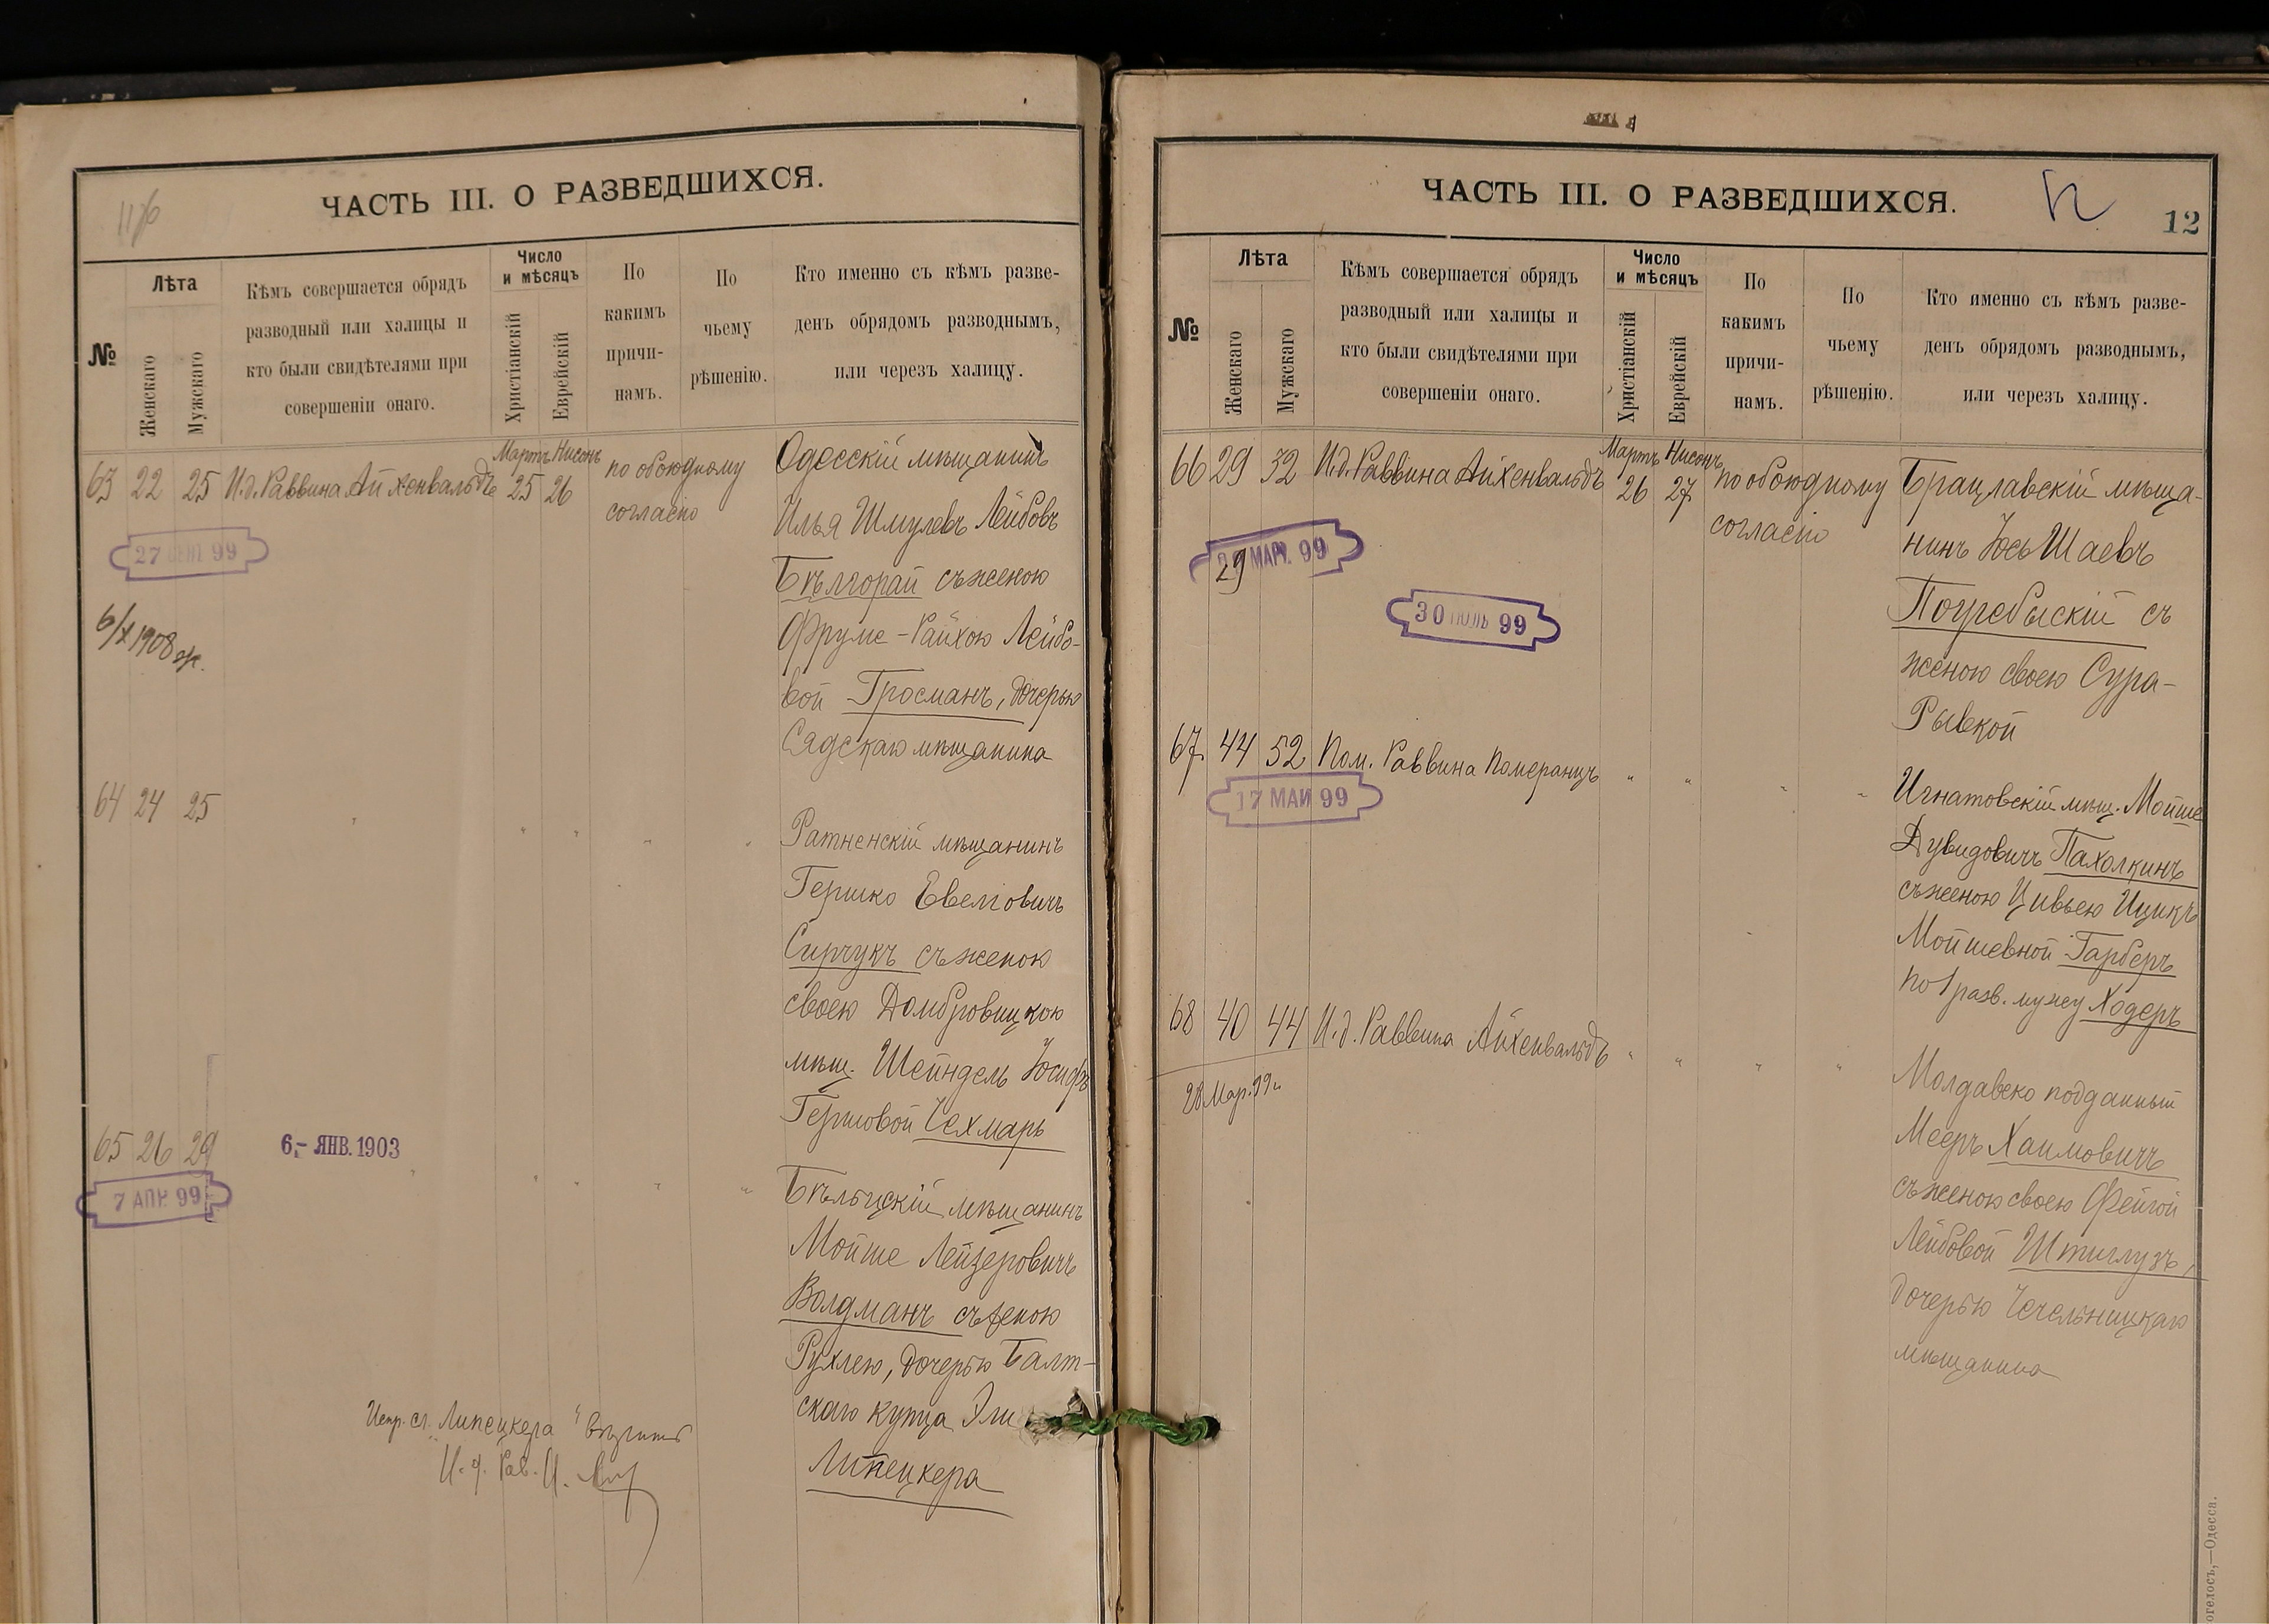 116
ЧАСТЬ III. О РАЗВЕДШИХСЯ.
№
Лѣта
Женскаго
Мужскаго
Кѣмъ совершается обрядъ
разводный или халицы и
кто были свидѣтелями при
совершеніи онаго.
Число
и мѣсяцъ
Христіанскій
Еврейскій
По
какимъ
причи-
намъ.
По
чьему
рѣшенію.
Кто именно съ кѣмъ разве-
денъ обрядомъ разводнымъ,
или черезъ халицу.
63 22 25 И.д. Раввина Айхенвальдъ
Мартъ Нисонъ
25 26
по обоюдному
согласію
Одесскій мѣщанинъ
Илья Шмулевъ Лейбовъ
Бѣлгорай съ женою
Фруме-Райхою Лейбо-
вой Гросманъ, дочерью
мѣщанина
27 99
6/X 1908
64 24 25 " " " " "
Ратненскій мѣщанинъ
Гершко
Сирчукъ съ женою
своею Домбровицкою
мѣщ. Шейндель Іосифъ
Гершовой Чехмарь
65 26 29 " " " " "
6 – ЯНВ. 1903
7 АПР. 99
Бѣльцскій мѣщанинъ
Мойше Лейзеровичъ
Волдманъ съ женою
Рухлею, дочерью Балт-
скаго купца Эли
Липецкера
Испр. сл. "Липецкера"
И. д. Рав.
ЧАСТЬ III. О РАЗВЕДШИХСЯ.
12
№
Лѣта
Женскаго
Мужскаго
Кѣмъ совершается обрядъ
разводный или халицы и
кто были свидѣтелями при
совершеніи онаго.
Число
и мѣсяцъ
Христіанскій
Еврейскій
По
какимъ
причи-
намъ.
По
чьему
рѣшенію.
Кто именно съ кѣмъ разве-
денъ обрядомъ разводнымъ,
или черезъ халицу.
66 29 32 И.д. Раввина Айхенвальдъ
Мартъ Нисонъ
26 27
по обоюдному
согласію
Брацлавскій мѣща-
нинъ Іось Шаевъ
Погребыскій съ
женою своею Сура-
Рывкой
29 МАР. 99
30 ІЮЛЬ 99
67 44 52 Пом. Раввина Померанцъ " " " "
17 МАИ 99
Игнатовскій мѣщ. Мойше
Дувидовичъ Пахолкинъ
съ женою Цивьею Ицикъ
Мойшевной Гарберъ
по 1 разв. мужу Ходеръ
68 40 44 И.д. Раввина Айхенвальдъ " " " "
28 Мар. 99 г.
Молдавско подданный
Мееръ Хаимовичъ
съ женою своею Фейгой
Лейбовой Штиглузъ,
дочерью Чечельницкаго
мѣщанина
Одесса.